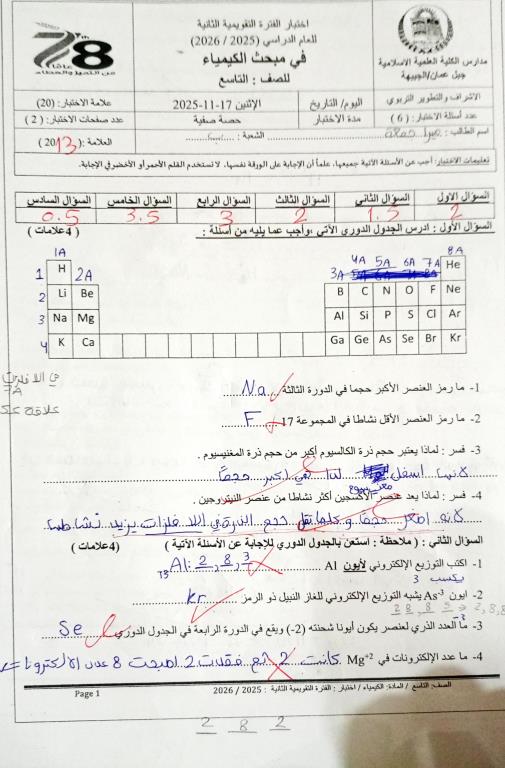 اختبار الفترة التقويمية الثانية
للعام الدراسي (2025 / 2026)
في مبحث الكيمياء
للصف : التاسع
مدارس الكلية العلمية الاسلامية
جبل عمان/الجبيهة
78
عامًا
من التميز والعطاء
الاشراف والتطوير التربوي
اليوم/ التاريخ
الإثنين 17-11-2025
علامة الاختبار: (20)
عدد أسئلة الاختبار: ( 6 )
مدة الاختبار
حصة صفية
عدد صفحات الاختبار: ( 2 )
اسم الطالب:
الشعبة :
العلامة: ( 13 20)
تعليمات الاختبار: أجب عن الأسئلة الآتية جميعها، علماً أن الإجابة على الورقة نفسها، لا تستخدم القلم الأحمر أو الأخضر في الإجابة.
السؤال الأول السؤال الثاني السؤال الثالث السؤال الرابع السؤال الخامس السؤال السادس
2 1.5 2 3 3.5 0.5
السؤال الأول : ادرس الجدول الدوري الآتي ،وأجب عما يليه من أسئلة : ( 4علامات )
1A 8A
1 H 2A 3A 4A 5A 6A 7A He
2 Li Be B C N O F Ne
3 Na Mg Al Si P S Cl Ar
4 K Ca Ga Ge As Se Br Kr
في الافلزات
7A
1- ما رمز العنصر الأكبر حجما في الدورة الثالثة Na
2- ما رمز العنصر الأقل نشاطا في المجموعة 17 F
3- فسر : لماذا يعتبر حجم ذرة الكالسيوم أكبر من حجم ذرة المغنيسيوم .
لانها اسفل لذا هي اكبر حجماً
4- فسر : لماذا يعد عنصر الأكسجين أكثر نشاطا من عنصر النيتروجين .
لانه اصغر حجماً و كلما قل حجم الذرة في اللا فلزات يزيد نشاطها
السؤال الثاني : ( ملاحظة : استعن بالجدول الدوري للإجابة عن الأسئلة الآتية ) (4علامات )
1- اكتب التوزيع الإلكتروني لأيون Al
13Al: 2, 8, 3
يكسب 3
2- ايون As-3 يشبه التوزيع الإلكتروني للغاز النبيل ذو الرمز Kr
3- ما العدد الذري لعنصر يكون أيونا شحنته (2-) ويقع في الدورة الرابعة في الجدول الدوري Se
4- ما عدد الإلكترونات في Mg+2 كانت 2 فقدت 2 اصبحت 8 عدد الالكترونات
الصف: التاسع / المادة: الكيمياء / اختبار : الفترة التقويمية الثانية : 2025 / 2026
Page 1
2 8 2